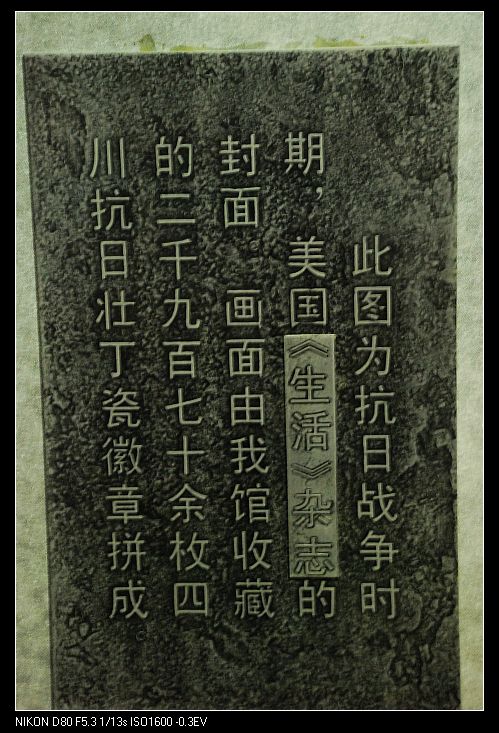 此图为抗日战争时
期，美国《生活》杂志的
封面 画面由我馆收藏
的二千九百七十余枚四
川抗日壮丁瓷徽章拼成
NIKON D80 F5.3 1/13s ISO1600 -0.3EV